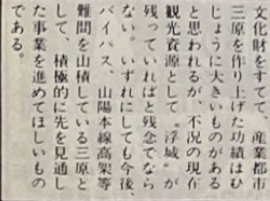 文化財をすてて、産業都市
三原を作り上げた功績はひ
じょうに大きいものがある
と思われるが、不況の現在
観光資源として〝浮城〟が
残っていればと残念でなら
ない。いずれにしても今後、
バイパス、山陽本線高架等
難問を山積している三原と
して、積極的に先を見通し
た事業を進めてほしいもの
である。